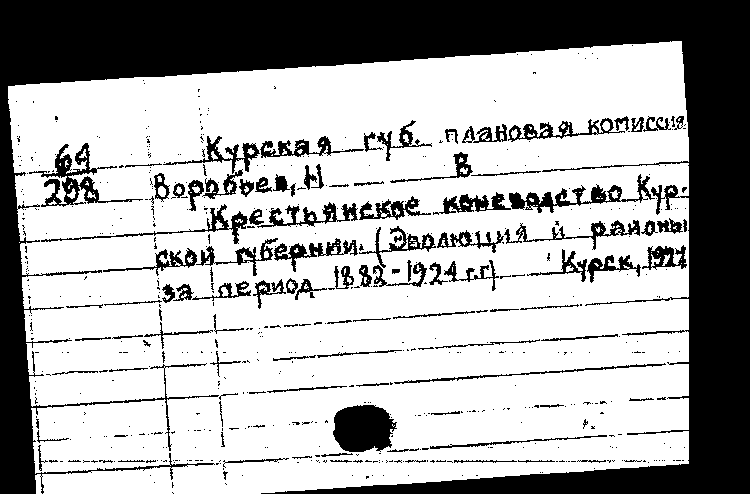 64 Курская губ. плановая комиссия
298 Воробьев, Н В
Крестьянское коневодство Кур-
ской губернии. (Эволюция и районы
за период 1882-1924 г.г) Курск,